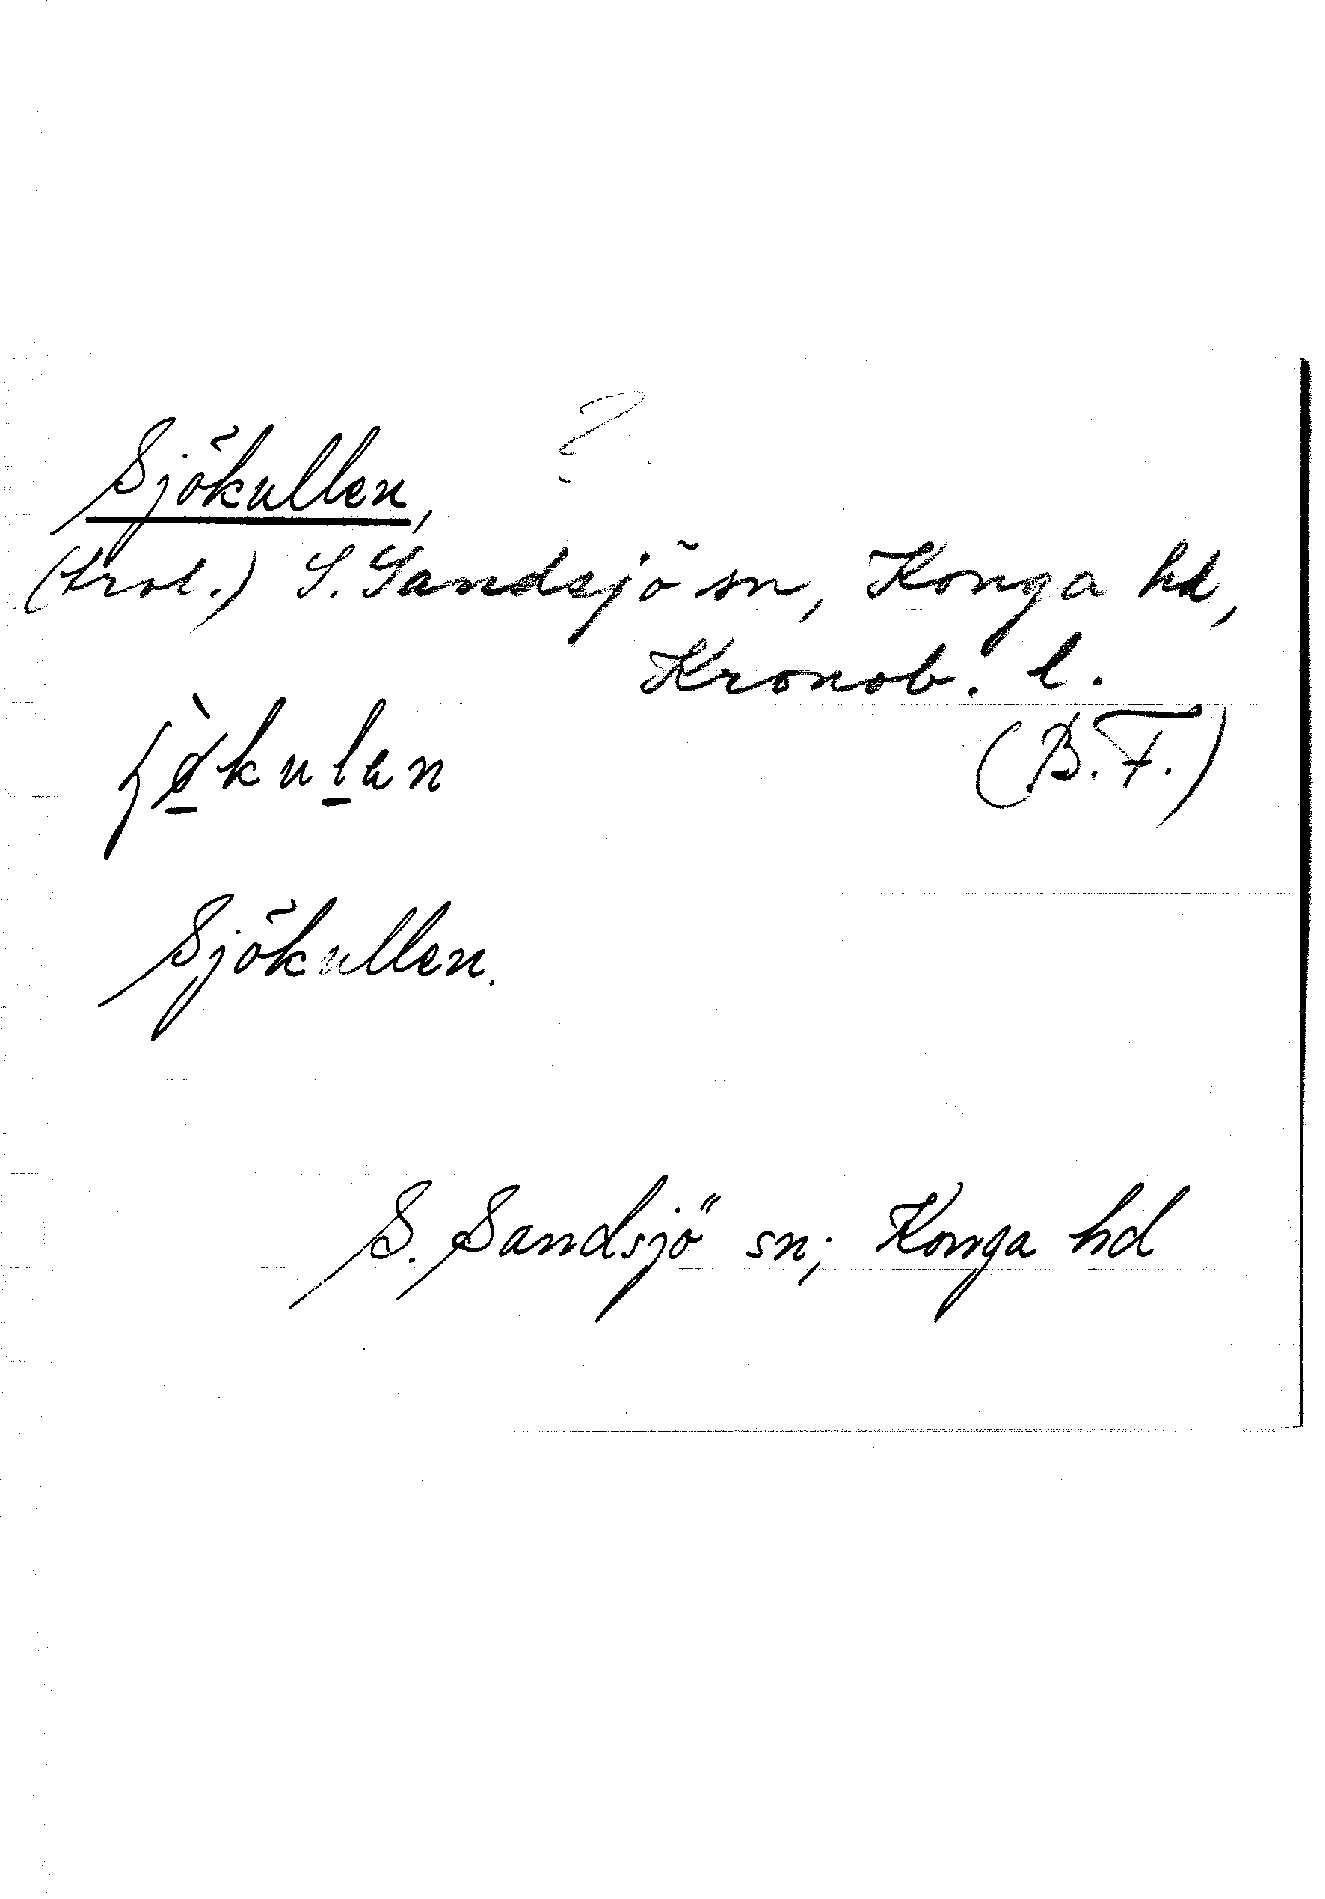 Sjökullen, ?
(trol.) S. Sandsjö sn, Konga hd,
Kronob. l.
(B.F.)
Sjökullen.
S. Sandsjö sn; Konga hd